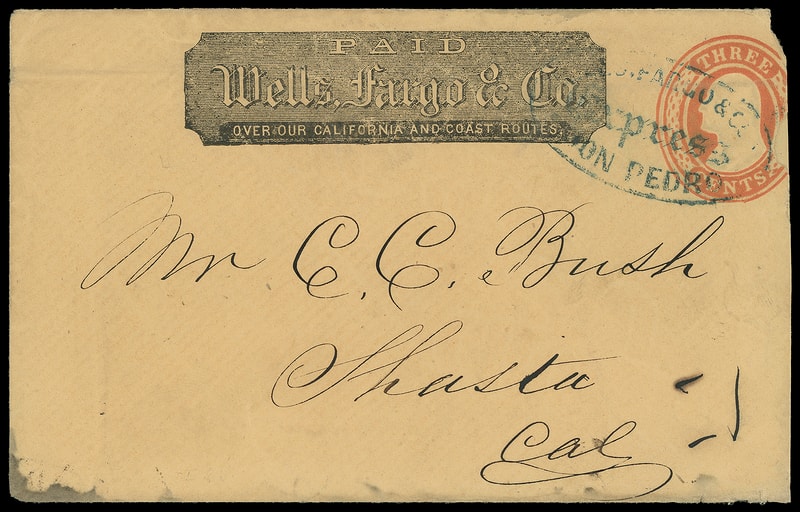 PAID
Wells, Fargo & Co.
OVER OUR CALIFORNIA AND COAST ROUTES.
THREE
CENTS
FARGO & CO
Express
DON PEDRO
Mr C. C. Bush
Shasta
Cal